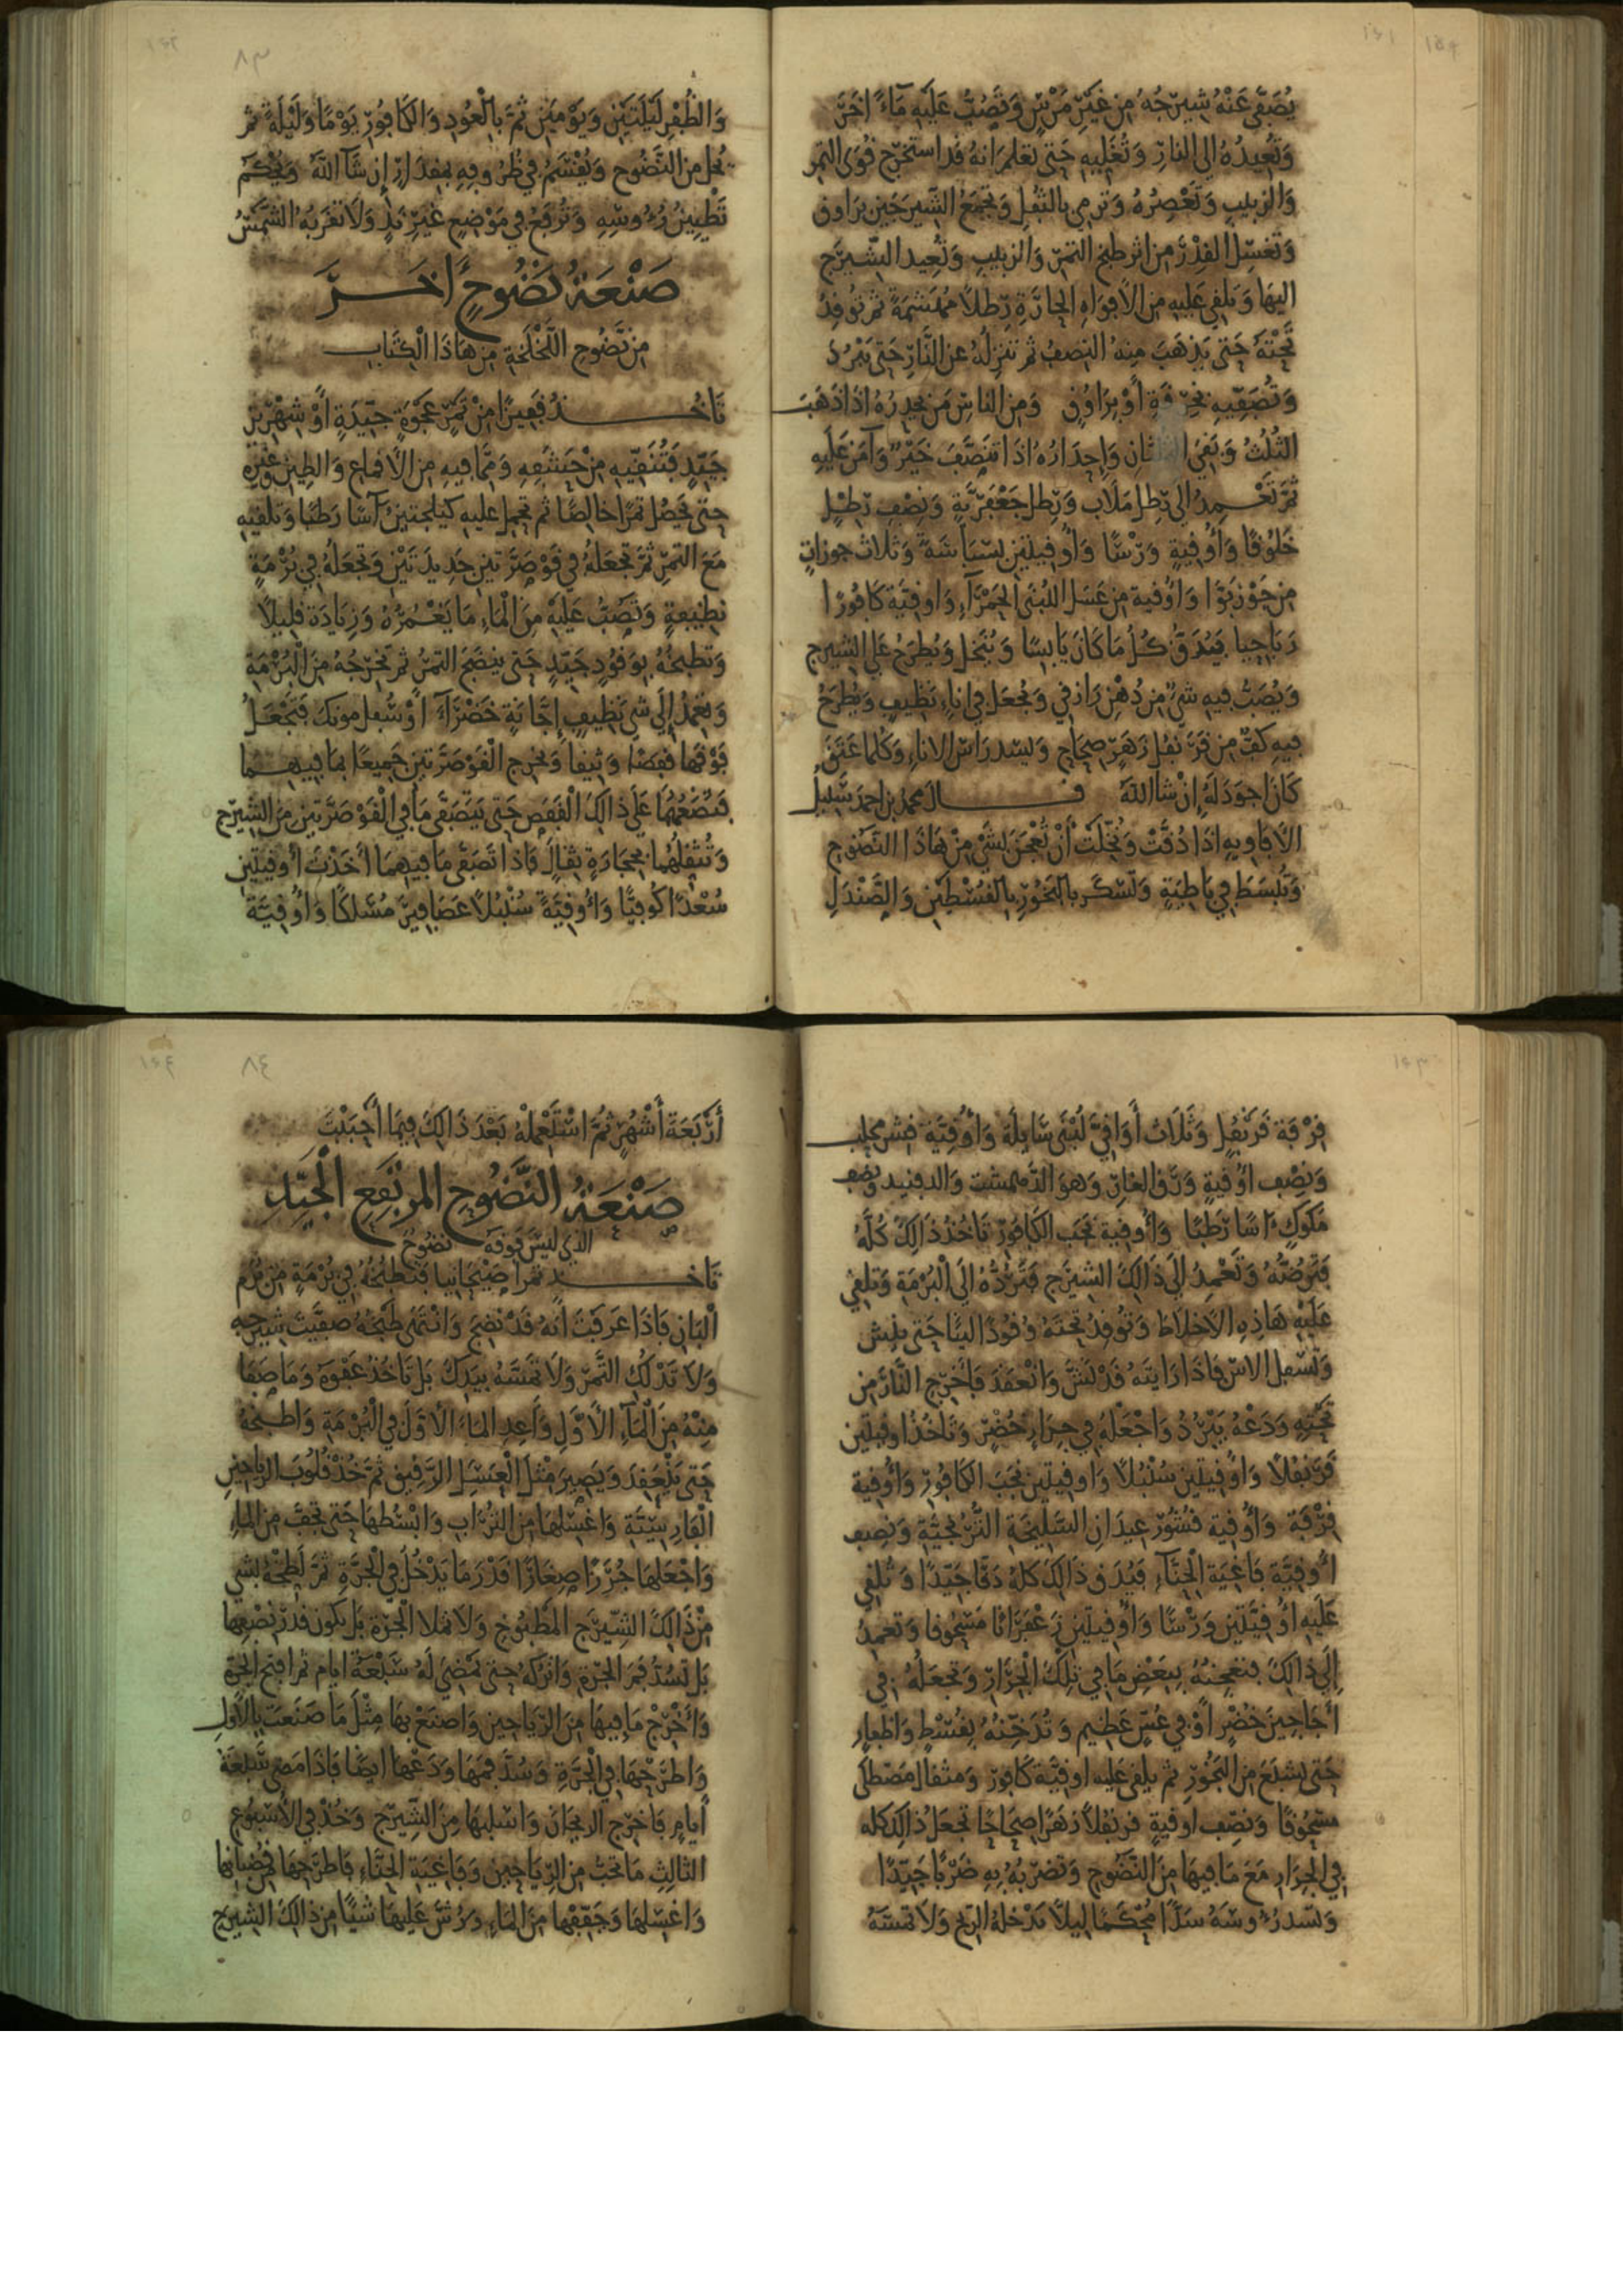 يُصَفَّى عَنْهُ شِيرَجُهُ مِن غَيْرِ مَرْسٍ وَتَصُبُّ عَلَيْهِ مَاءً اخَرَ
وَتُعِيدُهُ الى النارِ وَتُغْلِيهِ حَتى تعلم انهُ قد استخرج قُوَى التمر
وَالزبيبِ وَتَعْصِرُهُ وَترمى بالثفلِ وَتجمَعُ الشيرجَين براوق
وَتَغسِل القِدْرَ من اثر طبخ التمر وَالزبيبِ وَتُعِيد الشِيرَج
اليهَا وَتلقى عَليهِ من الأفوَاهِ الحارَّةِ رطلاً مهشمَةً ثم توقِدُ
تَحْتَهُ حَتى يَذهَبَ مِنهُ النصفُ ثم تنزِلُهُ عن النَّارِ حَتى يَبْرُدَ
وَتُصَفِّيهِ بخِرْقَةٍ أوْ براوُقٍ وَمن الناسِ مَن يحدِرُهُ اذَا ذهَبَ
الثُلثُ وَبَقى الثلثانِ وَاحدَارُهُ اذَا تنَصَّفَ خَيْرٌ وَآمَن عَليهِ
ثمَّ تَعْمِدُ الى رِطل مَلاَب وَرِطل جَعْفَريَّةٍ وَنِصْف رَطْلٍ
خَلُوقًا وَأُوقِيةٍ وَرْسًا وَأُوقيتَيْن بَسْبَاسَةً وَثلاث جوزاتٍ
من جَوْزبَوَّا وَأُوقية من عَسَل اللُبْنَى الحَمْرَآءِ وَاوقِيَّة كَافُورًا
رَبَاحِيا فيُدَقُّ كُلُّ مَا كانَ يَابِسًا وَيُنْخَل وَيُطرَحُ عَلى الشيرج
وَيُصَبُّ فيهِ شىءٌ من دُهْن رَازقى وَيُجعَل فى اناءٍ نَظيفٍ وَيُطرَحُ
فيهِ كفٌّ من قَرَنفُل زَهَرٍ صِحَاحٍ وَليسدّ رَاس الاناءِ وَكلما عَتقَ
كَانَ اجوَدَ لَهُ إِنْ شا اللهُ قال محمد بن احمد سَبِيلُ
الأفاويهِ اذَا دُقَّتْ وَنُخِلَتْ أنْ تُعْجَنَ لشَىْ مِنْ هَاذَا النَّضُوحِ
وَتُبسَطَ فى بَاطِيَةٍ وَتُسْكَر بالبَخُورِ بالقُسْطِ وَالصَّنْدَلِ
وَالظُّفْرِ لَيْلَتَيْن وَيَوْمَيْن ثُمَّ بالْعُودِ وَالكافُورِ يَوْمًا وَلَيْلةً ثم
تُحل من النَّضُوح وَيُقْسَمُ فى ظُرُوفِهِ بمقدَارٍ إن شَآ اللهُ وَيُحْكَمُ
تَطْيِينُ رُءُوسِهِ وَتُرفَعُ فى مَوْضِعٍ غَيرِ نَدٍ وَلاَ تقرَبُه الشَّمْسُ
صَنْعَةُ نَضُوحٍ اخَرَ
مِن نَضُوح اللَّخْلَخَةِ مِن هَاذَا الْكِتَابِ
تَاخُذُ قَفِيزًا مِنْ تَمْرٍ عَجْوَةٍ جيّدَةٍ أوْ شِهْرِيزٍ
جَيّدٍ فَتُنَقِّيهِ مِنْ حَشَفِهِ وَمَّا فيهِ مِن الأَقماعِ وَالطِينِ وَغيْرهِ
حتى تَحصُل تمرًا خالصًا ثم تحمل عليهِ كيلجتين آسًا رَطبًا وَتلقيهِ
مَعَ التمرِ ثمَّ تجعَلهُ فى قَوْصَرَّتين جَدِيدَتَيْن وَتجعَلهُ فى بُرْمَةٍ
نظِيفةٍ وَتَصُبُّ عَلَيْهِ مِنَ الْمَاءِ مَا يَغْمُرُهُ وَزِيَادَة قليلاً
وَتطبخُهُ بوقُودٍ جَيّدٍ حَتى ينضَجَ التمرُ ثم تخرجُهُ مِنَ الْبُرْمَةِ
وَتعْمدُ إلَى شى نَظِيفٍ إجَّانَةٍ خَضْرَآءَ أو سُفل مونك فتَجْعَلُ
فَوْقهَا قفصًا وَثيقا وَتخرج القَوْصَرَّتين جميعًا بمَا فيهِمَا
فتضَعُهُمَا عَلَى ذَالِكَ الْقفَصِ حَتى يَتَصَفَّى مَا فى الْقَوْصَرَّتين مِنَ الشيرَج
وَتُثقِلهُما بحِجَارَةٍ ثِقالٍ فَاذا تَصَفَّى مَا فِيهِمَا أخَذْتَ أُوقيتَيْن
سُعْدًا كُوفيًّا وَأُوقيَّةً سُنْبُلاً عَصَافِيرَ مُشَاكًا وَأُوقيَّةَ
قِرْفَة قَرَنفُلٍ وَثَلَاثَ أَوَاقِىَّ لُبْنَى سَايلَة وَأُوقيَّة قشر محلب
وَنِصْف اوُقيةٍ وَرَق الغارِ وَهوَ الدهمشت وَنصْف
مَكُوكٍ آسًا رَطبًا وَأُوقية نجَب الكَافُورِ تَاخُذُ ذَالِكَ كُلَّهُ
فَتَرُضُّهُ وَتَعْمِدُ إلَى ذَالِكَ الشيرَج فَتَرُدُّهُ إلَى الْبُرْمَةِ وَتلقى
عَلَيْهِ هَاذِهِ الأخلاط وَتُوقِدُ تحتَهُ وُقُودًا لينًا حَتى ينش
وَتَسْفل الاس فَاذَا رَايتَهُ قَدْ نَشَّ وَانعَقدَ فَأخرِج النَّارَ مِن
تَحْتِهِ وَدَعْهُ يَبْرُدُ وَاجْعَلْهُ فى جِرَارٍ خُضْرٍ وَتَاخُذُ اوقيتَين
قَرَنفلاً وَاوُقيتَين سُنْبُلاً وَاوقيتَين نجَبَ الكافُورِ وَأُوقية
قِرْفَة وَأُوقية قُشُورَ عِيدَانِ السَّلِيخَةِ وَنِصف
أُوقِيَّة فَاغِيَة الْحِنَّآءِ فيُدَق ذَالِكَ كلهُ دَقًّا جَيّدًا وَتُلقى
عَلَيهِ اُوقِيَّتَين وَرْسًا وَأُوقيتَين زعْفَرَانًا مَسْحُوقا وَتعمِدُ
إلَى ذَالِكَ فتعجنُهُ ببَعْضِ مَا فِى تِلْكَ الجِرَارِ وَتجعَلُهُ فى
أجَاجِينَ خُضْرٍ أوْ فِى عُسٍّ عَظِيمٍ وَتُدَخِّنُهُ بقُسْطٍ وَاظفارٍ
حَتى يشبَعَ مِنَ البَخُورِ ثم يلقى عَليه اوقيَّة كافورٍ وَمثقال مَصْطكَى
مَسْحُوقًا وَنصْف اوقيةٍ قرنفُلاً زَهَرًا صِحَاحًا تجعَلُ ذالِكَ كله
فى الجرَارِ مَعَ مَا فيهَا مِنَ النَّضُوحِ وَتضربُهُ بِهِ ضَرْبًا جَيّدًا
وَتسُد رُءُوسَهُ سَدًّا مُحْكمًا ليلاَّ تدْخلهُ الريح وَلاَ تمسَّهُ
أرْبَعَةَ أَشْهُرٍ ثُمَّ اسْتَعْمِلْهُ بَعْدَ ذَالِكَ فِيمَا أحْبَبْتَ
صَنْعَةُ النَّضُوحِ المرتَفِعِ الْجَيِّدِ
الذى ليسَ فَوْقَهُ نَضُوحٌ
تَاخُذ تمرًا صَيْحَانيا فتطبُخُهُ فى بُرْمَةٍ مِن بُرَم
الْبَانِ فَاذَا عَرَفتَ انهُ قَدْ نضِجَ وَانْتَهَى طَبْخُهُ صفَّيْتَ شيرجهِ
وَلاَ تَدْلُكِ التَّمْرَ وَلاَ تمَسَّهُ بيَدِكَ بَل تَاخُذُ عَفْوَهُ وَمَا صَفَا
مِنْهُ مِنَ الْمَآءِ الأوَّلِ وَأَعِدِ المَاءَ الأَوَّلَ فى الْبُرْمَةِ وَاطبُخْهُ
حَتى يَنْعَقِدَ وَيَصِيرَ مِثْلَ الْعَسَلِ الرَّقِيق ثمَّ خُذْ قُلُوبَ الريَاحِينِ
وَاغْسِلهَا مِنَ التُرَابِ وَابْسُطهَا حَتى تجِفَّ مِنَ الماءِ
وَاجْعَلهَا جُزَرًا صِغَارًا قَدْرَ مَا يَدْخُلُ فى الْجَرَّةِ ثمَّ لَطِّخْهُ بشى
مِنْ ذَالِكَ الشِّيرَج المَطْبُوخ وَلاَ تملا الْجَرَّة بَل يكون قدْر نصْفِهَا
بَل تسُدّ فمَ الْجَرّةِ وَاترُكهُ حَتى تمضى لَهُ سَبْعَةُ ايام ثم افتح الْجَرة
وَأخْرِجْ مَا فِيهَا مِنَ الريَاحِينِ وَاصنَعْ بهَا مِثْلَ مَا صَنَعتَ بالأوَّلِ
وَاطرَحْهَا فى الْجَرَّةِ وَسُدَّ فمَهَا وَدَعْهَا ايضًا فَاذَا مَضى سَبْعَةُ
أيامٍ فَاخرِج الريحَانَ وَاسْلِبْهَا مِنَ الشِّيرَج وَخُذْ فى الأُسْبُوعِ
الثالِثِ مَا تحبُّ مِنَ الرِّيَاحِينِ وَفَاغِيَة الحِنَّاءِ فَاطرَحهَا مِن قُضْبانهَا
وَاغْسِلهَا وَجَفِّفْهَا مِنَ المَاءِ وَرُشَّ عَلَيهَا شَيًّا مِن ذالِكَ الشِيرَج